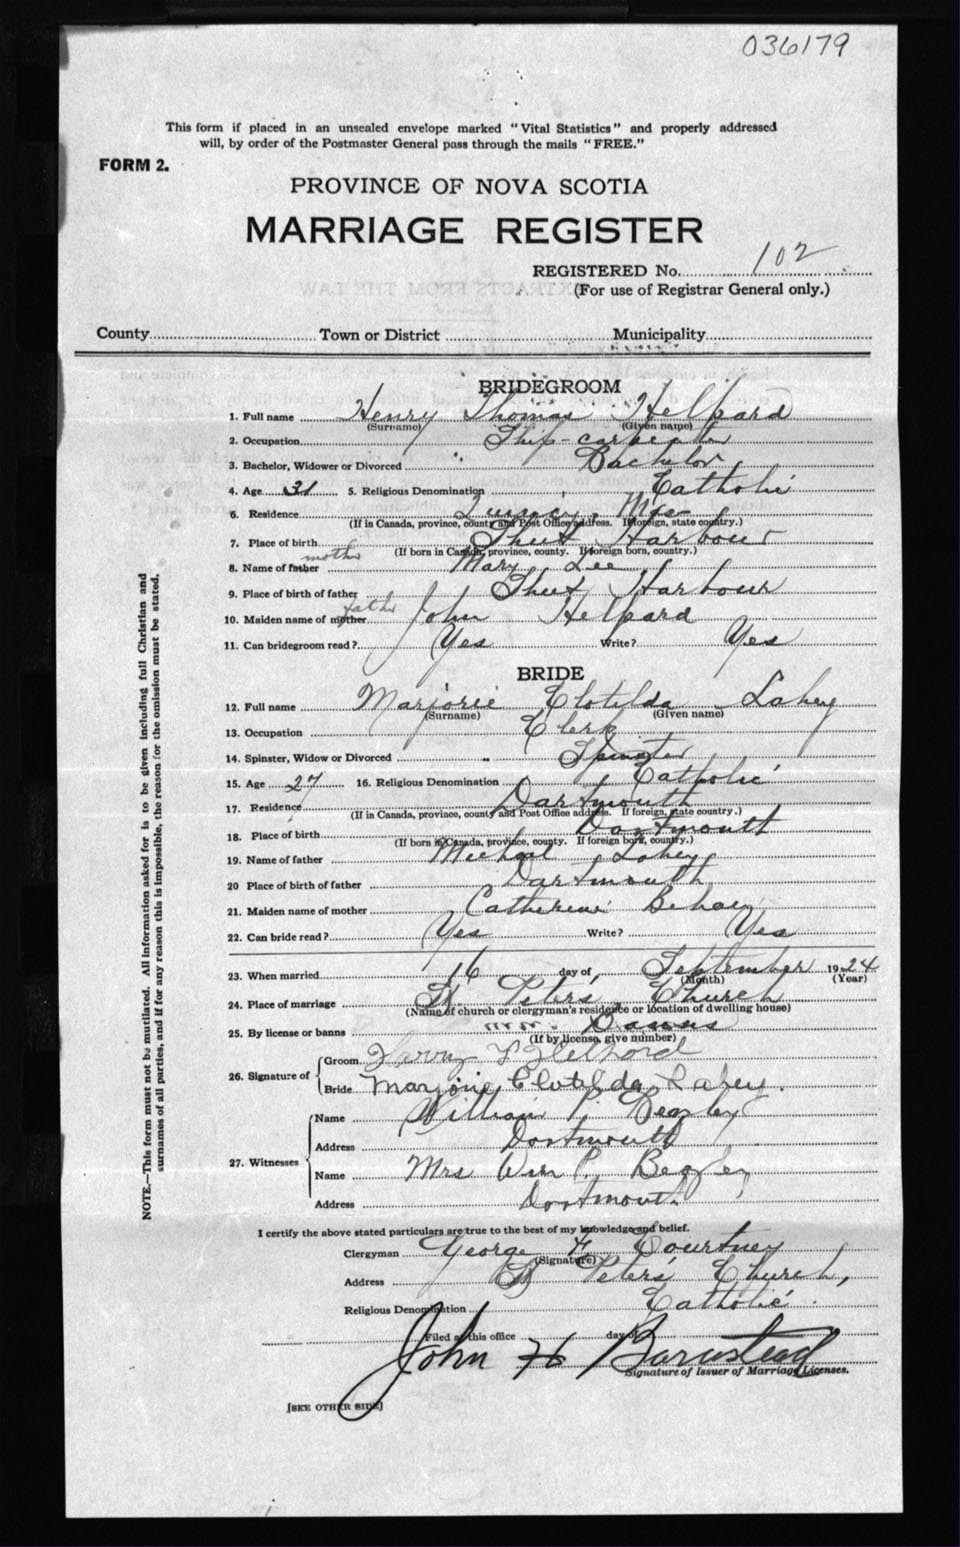 036179
This form if placed in an unsealed envelope marked "Vital Statistics" and properly addressed
will, by order of the Postmaster General pass through the mails "FREE."
FORM 2.
PROVINCE OF NOVA SCOTIA
MARRIAGE REGISTER
REGISTERED No. 102
(For use of Registrar General only.)
County Town or District Municipality
BRIDEGROOM
1. Full name Henry Thomas Helpard
(Surname) (Given name)
2. Occupation Ship-carpenter
3. Bachelor, Widower or Divorced Bachelor
4. Age 31 5. Religious Denomination Catholic
6. Residence Quincy, Mas
(If in Canada, province, county and Post Office address. If foreign, state country.)
7. Place of birth Sheet Harbour
(If born in Canada, province, county. If foreign born, country.)
mother
8. Name of father Mary Lee
9. Place of birth of father Sheet Harbour
father
10. Maiden name of mother John Helpard
11. Can bridegroom read? Yes Write? Yes
BRIDE
12. Full name Marjorie Clotilda Lahey
(Surname) (Given name)
13. Occupation Clerk
14. Spinster, Widow or Divorced Spinster
15. Age 27 16. Religious Denomination Catholic
17. Residence Dartmouth
(If in Canada, province, county and Post Office address. If foreign, state country.)
18. Place of birth Dartmouth
(If born in Canada, province, county. If foreign born, country.)
19. Name of father Micheal Lahey
20 Place of birth of father Dartmouth
21. Maiden name of mother Catherine
22. Can bride read? Yes Write? Yes
23. When married 16 day of September 1924
(Month) (Year)
24. Place of marriage St. Peter's Church
(Name of church or clergyman's residence or location of dwelling house)
25. By license or banns Banns
(If by license, give number)
26. Signature of Groom Henry T Helpard
Bride Marjorie Clotilda Lahey.
27. Witnesses Name William P. Beazley
Address Dartmouth
Name Mrs Wm P. Beazley
Address Dartmouth
I certify the above stated particulars are true to the best of my knowledge and belief.
Clergyman George F Courtney
(Signature)
Address St Peter's Church,
Religious Denomination Catholic.
Filed at this office day of
John H Barnstead
Signature of Issuer of Marriage Licenses.
[SEE OTHER SIDE]
NOTE.—This form must not be mutilated. All information asked for is to be given including full Christian and
surnames of all parties, and if for any reason this is impossible, the reason for the omission must be stated.